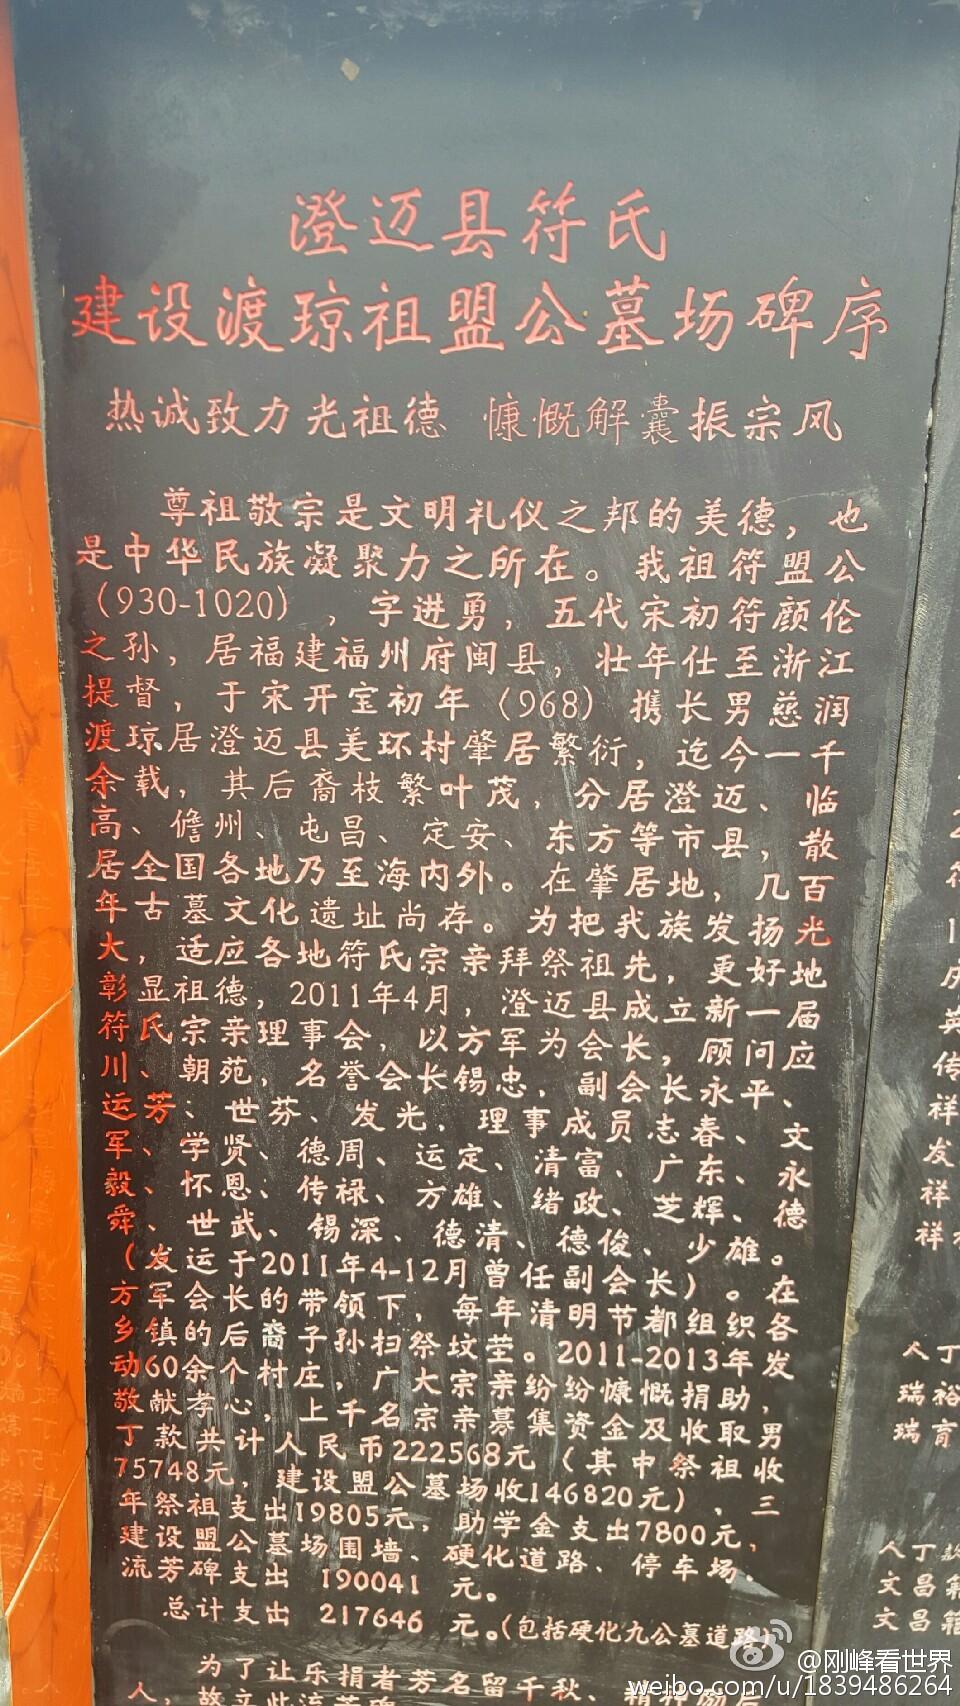 澄迈县符氏
建设渡琼祖盟公墓场碑序
热诚致力光祖德 慷慨解囊振宗风
尊祖敬宗是文明礼仪之邦的美德，也
是中华民族凝聚力之所在。我祖符盟公
（930-1020），字进勇，五代宋初符颜伦
之孙，居福建福州府闽县，壮年仕至浙江
提督，于宋开宝初年（968）携长男慈润
渡琼居澄迈县美环村肇居繁衍，迄今一千
余载，其后裔枝繁叶茂，分居澄迈、临
高、儋州、屯昌、定安、东方等市县，散
居全国各地乃至海内外。在肇居地，几百
年古墓文化遗址尚存。为把我族发扬光
大，适应各地符氏宗亲拜祭祖先，更好地
彰显祖德，2011年4月，澄迈县成立新一届
符氏宗亲理事会，以方军为会长，顾问应
川、朝苑，名誉会长锡忠，副会长永平、
运芳、世芬、发光，理事成员志春、文
军、学贤、德周、运定、清富、广东、永
毅、怀恩、传禄、方雄、绪政、芝辉、德
舜、世武、锡深、德清、德俊、少雄。
（发运于2011年4-12月曾任副会长）。在
方军会长的带领下，每年清明节都组织各
乡镇的后裔子孙扫祭坟茔。2011-2013年发
动60余个村庄，广大宗亲纷纷慷慨捐助，
敬献孝心，上千名宗亲募集资金及收取男
丁款共计人民币222568元（其中祭祖收
75748元，建设盟公墓场收146820元），三
年祭祖支出19805元，助学金支出7800元，
建设盟公墓场围墙、硬化道路、停车场、
流芳碑支出 190041 元。
总计支出 217646 元。（包括硬化九公墓道路）
为了让乐捐者芳名留千秋、
人，
人丁
瑞裕
瑞育
人丁款
文昌籍
文昌籍
@刚峰看世界
weibo.com/u/1839486264